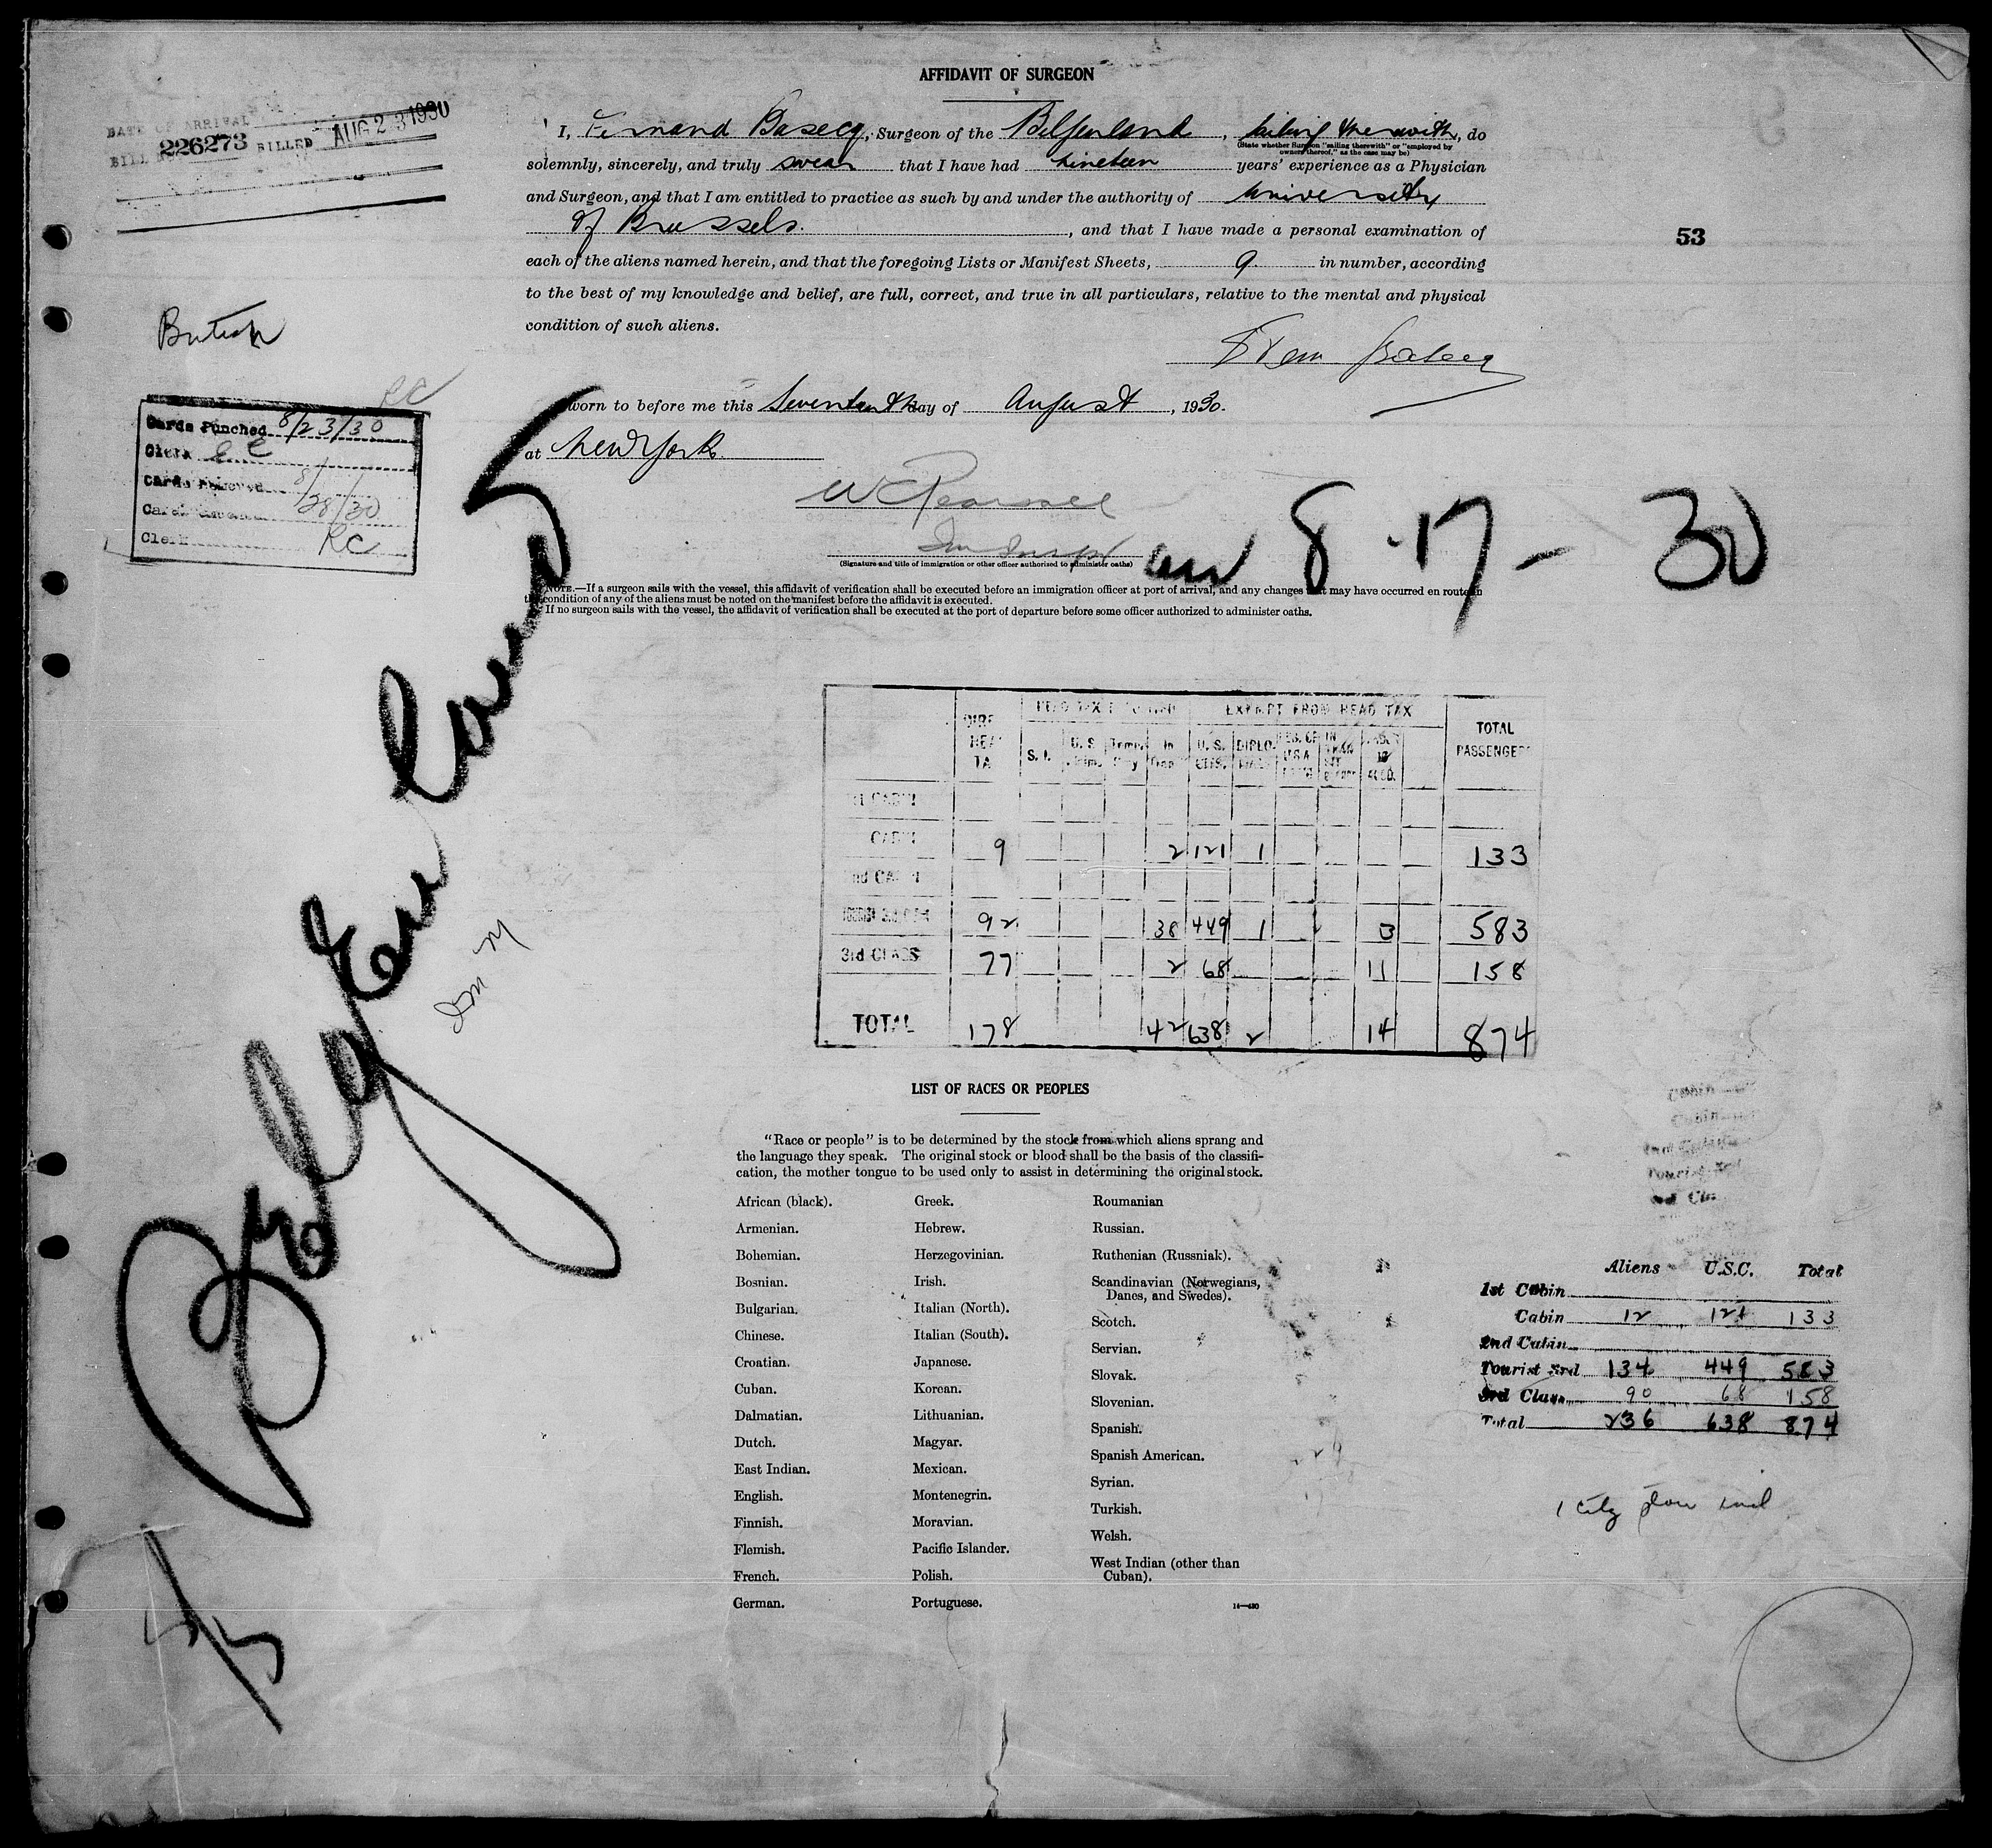 AFFIDAVIT OF SURGEON
DATE OF ARRIVAL
BILL 226273 BILLED AUG 23 1930
I, Fernand Basecq, Surgeon of the Belgenland, sailing therewith, do
(State whether Surgeon "sailing therewith" or "employed by
owners thereof," as the case may be)
solemnly, sincerely, and truly swear that I have had nineteen years' experience as a Physician
and Surgeon, and that I am entitled to practice as such by and under the authority of University
of Brussels., and that I have made a personal examination of
53
each of the aliens named herein, and that the foregoing Lists or Manifest Sheets, 9. in number, according
to the best of my knowledge and belief, are full, correct, and true in all particulars, relative to the mental and physical
condition of such aliens.
British
RC
Cards Punched 8/23/30
Clerk E C
Cards 8/28/30
Clerk RC
worn to before me this Seventeenth day of August, 1930.
at New York.
(Signature and title of immigration or other officer authorized to administer oaths)
8-17-30
NOTE.—If a surgeon sails with the vessel, this affidavit of verification shall be executed before an immigration officer at port of arrival, and any changes that may have occurred en route in
the condition of any of the aliens must be noted on the manifest before the affidavit is executed.
If no surgeon sails with the vessel, the affidavit of verification shall be executed at the port of departure before some officer authorized to administer oaths.
Belgenland
EXEMPT FROM HEAD TAX
TOTAL PASSENGERS
S. I. U. S. In U. S. DIPLO.
1st CABIN
CABIN 9 2 121 1 133
2nd CABIN
TOURIST 3rd 92 38 449 1 3 583
3rd CLASS 77 2 68 11 158
TOTAL 178 42 638 2 14 874
LIST OF RACES OR PEOPLES
"Race or people" is to be determined by the stock from which aliens sprang and
the language they speak. The original stock or blood shall be the basis of the classifi-
cation, the mother tongue to be used only to assist in determining the original stock.
African (black).
Armenian.
Bohemian.
Bosnian.
Bulgarian.
Chinese.
Croatian.
Cuban.
Dalmatian.
Dutch.
East Indian.
English.
Finnish.
Flemish.
French.
German.
Greek.
Hebrew.
Herzegovinian.
Irish.
Italian (North).
Italian (South).
Japanese.
Korean.
Lithuanian.
Magyar.
Mexican.
Montenegrin.
Moravian.
Pacific Islander.
Polish.
Portuguese.
Roumanian
Russian.
Ruthenian (Russniak).
Scandinavian (Norwegians,
Danes, and Swedes).
Scotch.
Servian.
Slovak.
Slovenian.
Spanish.
Spanish American.
Syrian.
Turkish.
Welsh.
West Indian (other than
Cuban).
Aliens U.S.C. Total
1st Cabin
Cabin 12 121 133
2nd Cabin
Tourist 3rd 134 449 583
3rd Class 90 68 158
Total 236 638 874